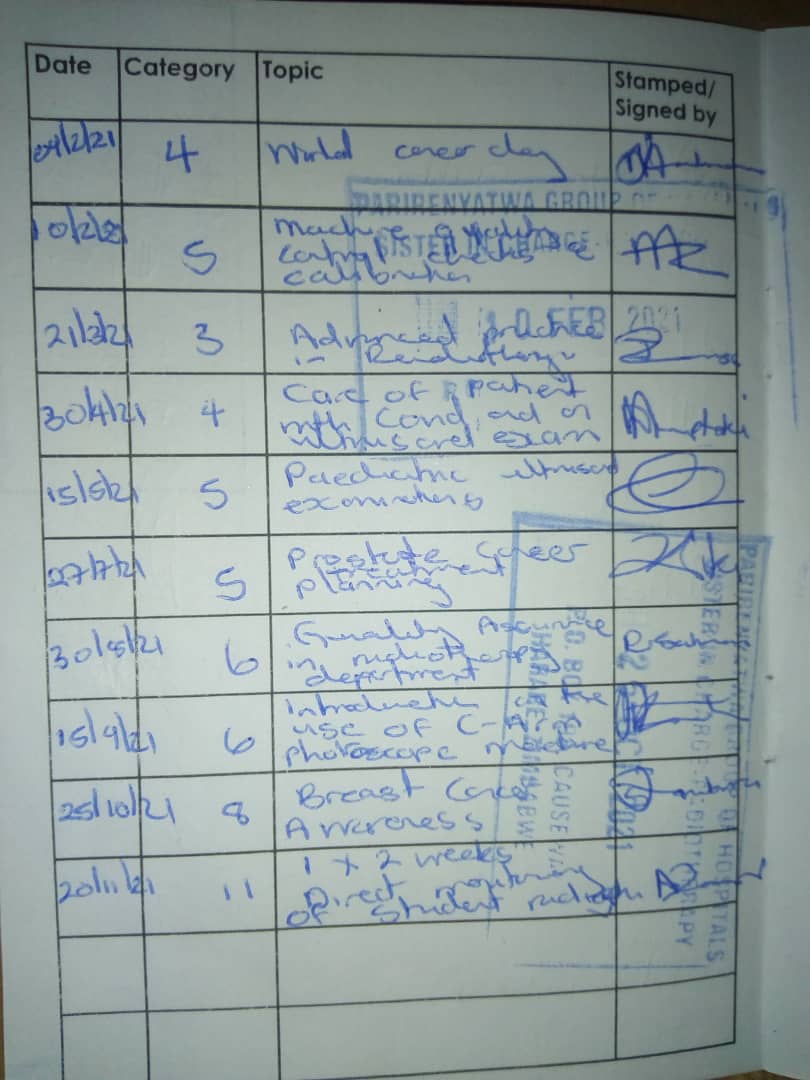 Date Category Topic Stamped/
Signed by
04/2/21 4 World cancer day
10/2/21 5 Machine quality
control checks &
calibration
21/3/21 3 Advanced practice
in
30/4/21 4 Care of patient
with Cond
ultrasound exam
15/5/21 5 Paediatric ultrasound
examinations
27/7/21 5 Prostate Cancer
treatment
planning
30/8/21 6 Quality Assurance
in radiotherapy
department
15/9/21 6 Introduction
use of C-Arm
25/10/21 8 Breast Cancer
Awareness
20/11/21 11 1 x 2 weeks
Direct monitoring
of student
PARIRENYATWA GROUP OF
SISTER IN CHARGE
10 FEB 2021
PARIRENYATWA GROUP OF HOSPITALS
SISTER IN CHARGE RADIOTHERAPY
2021
P.O. BOX CAUSEWAY
HARARE ZIMBABWE